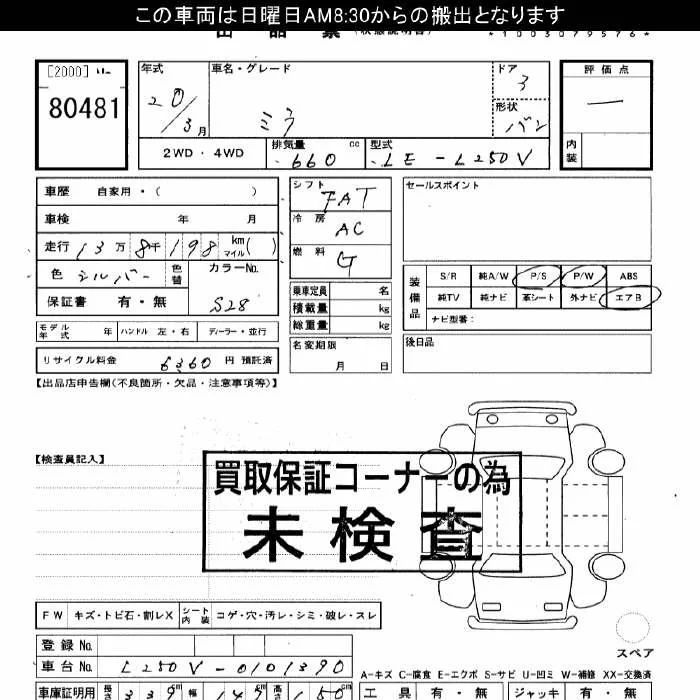 この車両は日曜日AM8:30からの搬出となります
出品票 (状態説明書) *1003079576*
[2000]
80481
年式 車名・グレード ドア 3 評価点
20/3月 ミラ 形状 バン 一
2WD・4WD 排気量 660 cc 型式 LE-L250V 内装
車歴 自家用・( )
車検 年 月
走行 13万8千198 km マイル ( )
色 シルバー 色替 カラーNo. S28
保証書 有・無
モデル年式 年 ハンドル 左・右 ディーラー・並行
リサイクル料金 6,360 円 預託済
シフト FAT
冷房 AC
燃料 G
乗車定員 名
積載量 kg
総重量 kg
名変期限 月 日
セールスポイント
装備品 S/R 純A/W P/S P/W ABS
純TV 純ナビ 革シート 外ナビ エアB
ナビ型番:
後日品
【出品店申告欄(不良箇所・欠品・注意事項等)】
【検査員記入】
買取保証コーナーの為
未検査
FW キズ・トビ石・割レX シート内装 コゲ・穴・汚レ・シミ・破レ・スレ
登録No.
車台No. L250V-0101390
スペア
A-キズ C-腐食 E-エクボ S-サビ U-凹ミ W-補修 XX-交換済
車庫証明用 長さ 339cm 幅 147cm 高さ 150cm
工具 有・無 ジャッキ 有・無